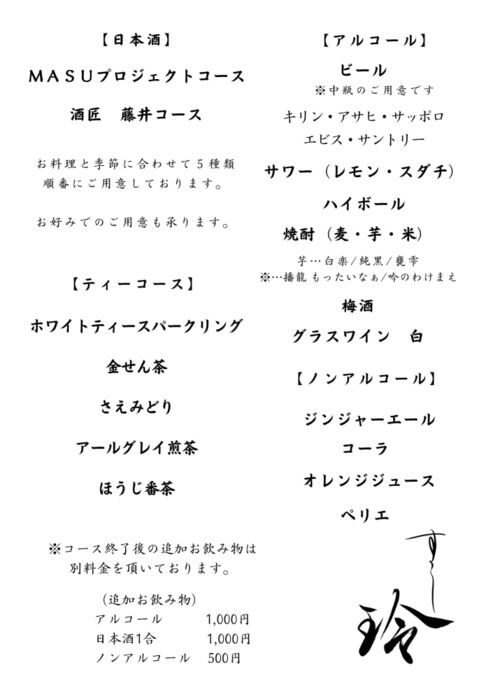 【日本酒】
ＭＡＳＵプロジェクトコース
酒匠　藤井コース
お料理と季節に合わせて５種類
順番にご用意しております。
お好みでのご用意も承ります。
【ティーコース】
ホワイトティースパークリング
金せん茶
さえみどり
アールグレイ煎茶
ほうじ番茶
※コース終了後の追加お飲み物は
別料金を頂いております。
（追加お飲み物）
アルコール　1,000円
日本酒1合　1,000円
ノンアルコール　500円
【アルコール】
ビール
※中瓶のご用意です
キリン・アサヒ・サッポロ
エビス・サントリー
サワー（レモン・スダチ）
ハイボール
焼酎（麦・芋・米）
芋…白楽/純黒/甕雫
※…播龍 もったいなぁ/吟のわけまえ
梅酒
グラスワイン　白
【ノンアルコール】
ジンジャーエール
コーラ
オレンジジュース
ペリエ
すし
玲